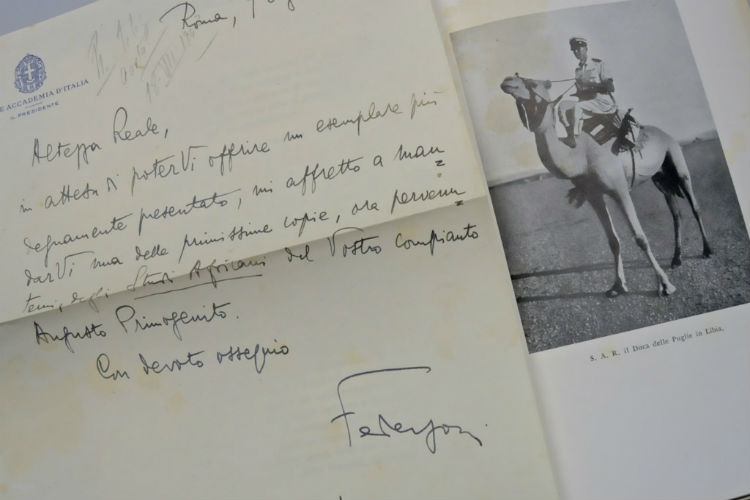 Roma,
E ACCADEMIA D'ITALIA
IL PRESIDENTE
Altezza Reale,
in attesa di poterVi offrire un esemplare più
degnamente presentato, mi affretto a man=
darVi una delle primissime copie, ora pervenu=
temi, degli Studi Africani del Vostro compianto
Augusto Primogenito.
Con devoto ossequio
Federzoni
S. A. R. il Duca delle Puglie in Libia.